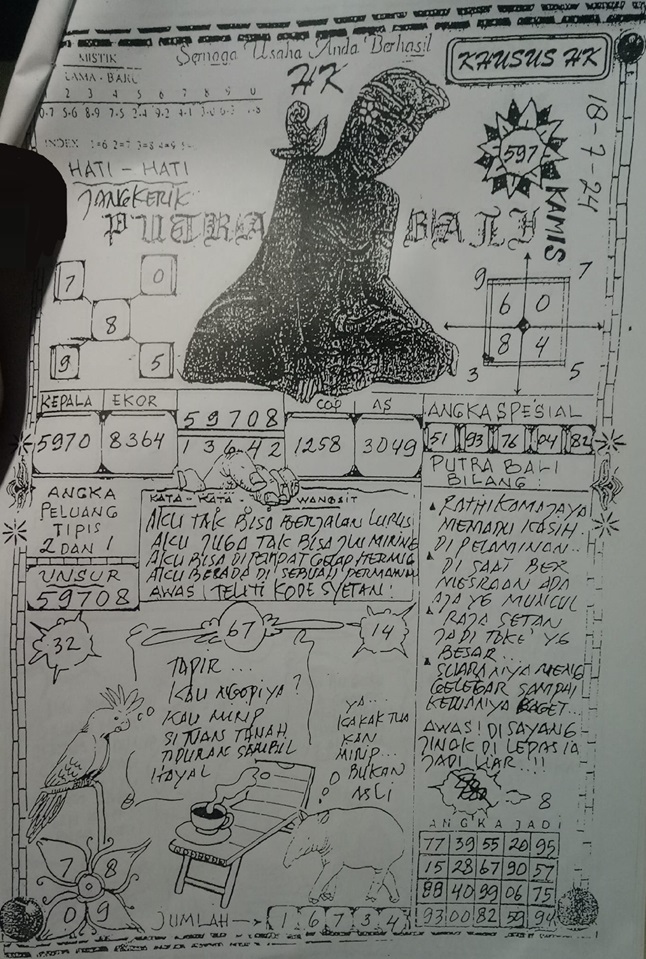 Semoga Usaha Anda Berhasil
MISTIK
LAMA - BARU
2 3 4 5 6 7 8 9 0
0-7 5-6 8-9
INDEX 1=6 2=7 3=8 4=9
HK
KHUSUS HK
18-7-24
KAMIS
597
HATI - HATI
JANGKERIK
PUTRA BALI
7 0
8
9 5
9 7
6 0
8 4
3 5
KEPALA EKOR
5970 8364
59708
13642
COP AS
1258 3049
ANGKA SPESIAL
51 93 76 04 82
ANGKA
PELUANG
TIPIS
2 DAN 1
UNSUR
59708
KATA - KATA - WANGSIT
AKU TAK BISA BERJALAN LURUS
AKU JUGA TAK BISA JUI MIRING
AKU BISA DI TEMPAT GELAP
AKU BERADA DI SEBUAH
AWAS TELITI KODE SYETAN!
PUTRA BALI
BILANG :
RATHI KAMAJAYA
MEMADU KASIH
DI PELAMINAN..
DI SAAT BER
MESRAAN ADA
AJA YG MUNCUL
RAJA SETAN
JADI TOKE' YG
BESAR...
SUARANYA MENG
GELEGAR SAMPAI
AWAS! DI SAYANG
8
32
67
14
TAPIR ...
KAU NGOPIYA ?
KAU MIRIP
SI TUAN TANAH
TIDURAN SAMBIL
HAYAL
YA..
KAKAK TUA
KAN
MIRIP...
BUKAN
ASLI
7 8
0 9
JUMLAH 1 6 7 3 4
ANGKA JADI
77 39 55 20 95
15 28 67 90 57
88 40 99 06 75
93 00 82 59 94